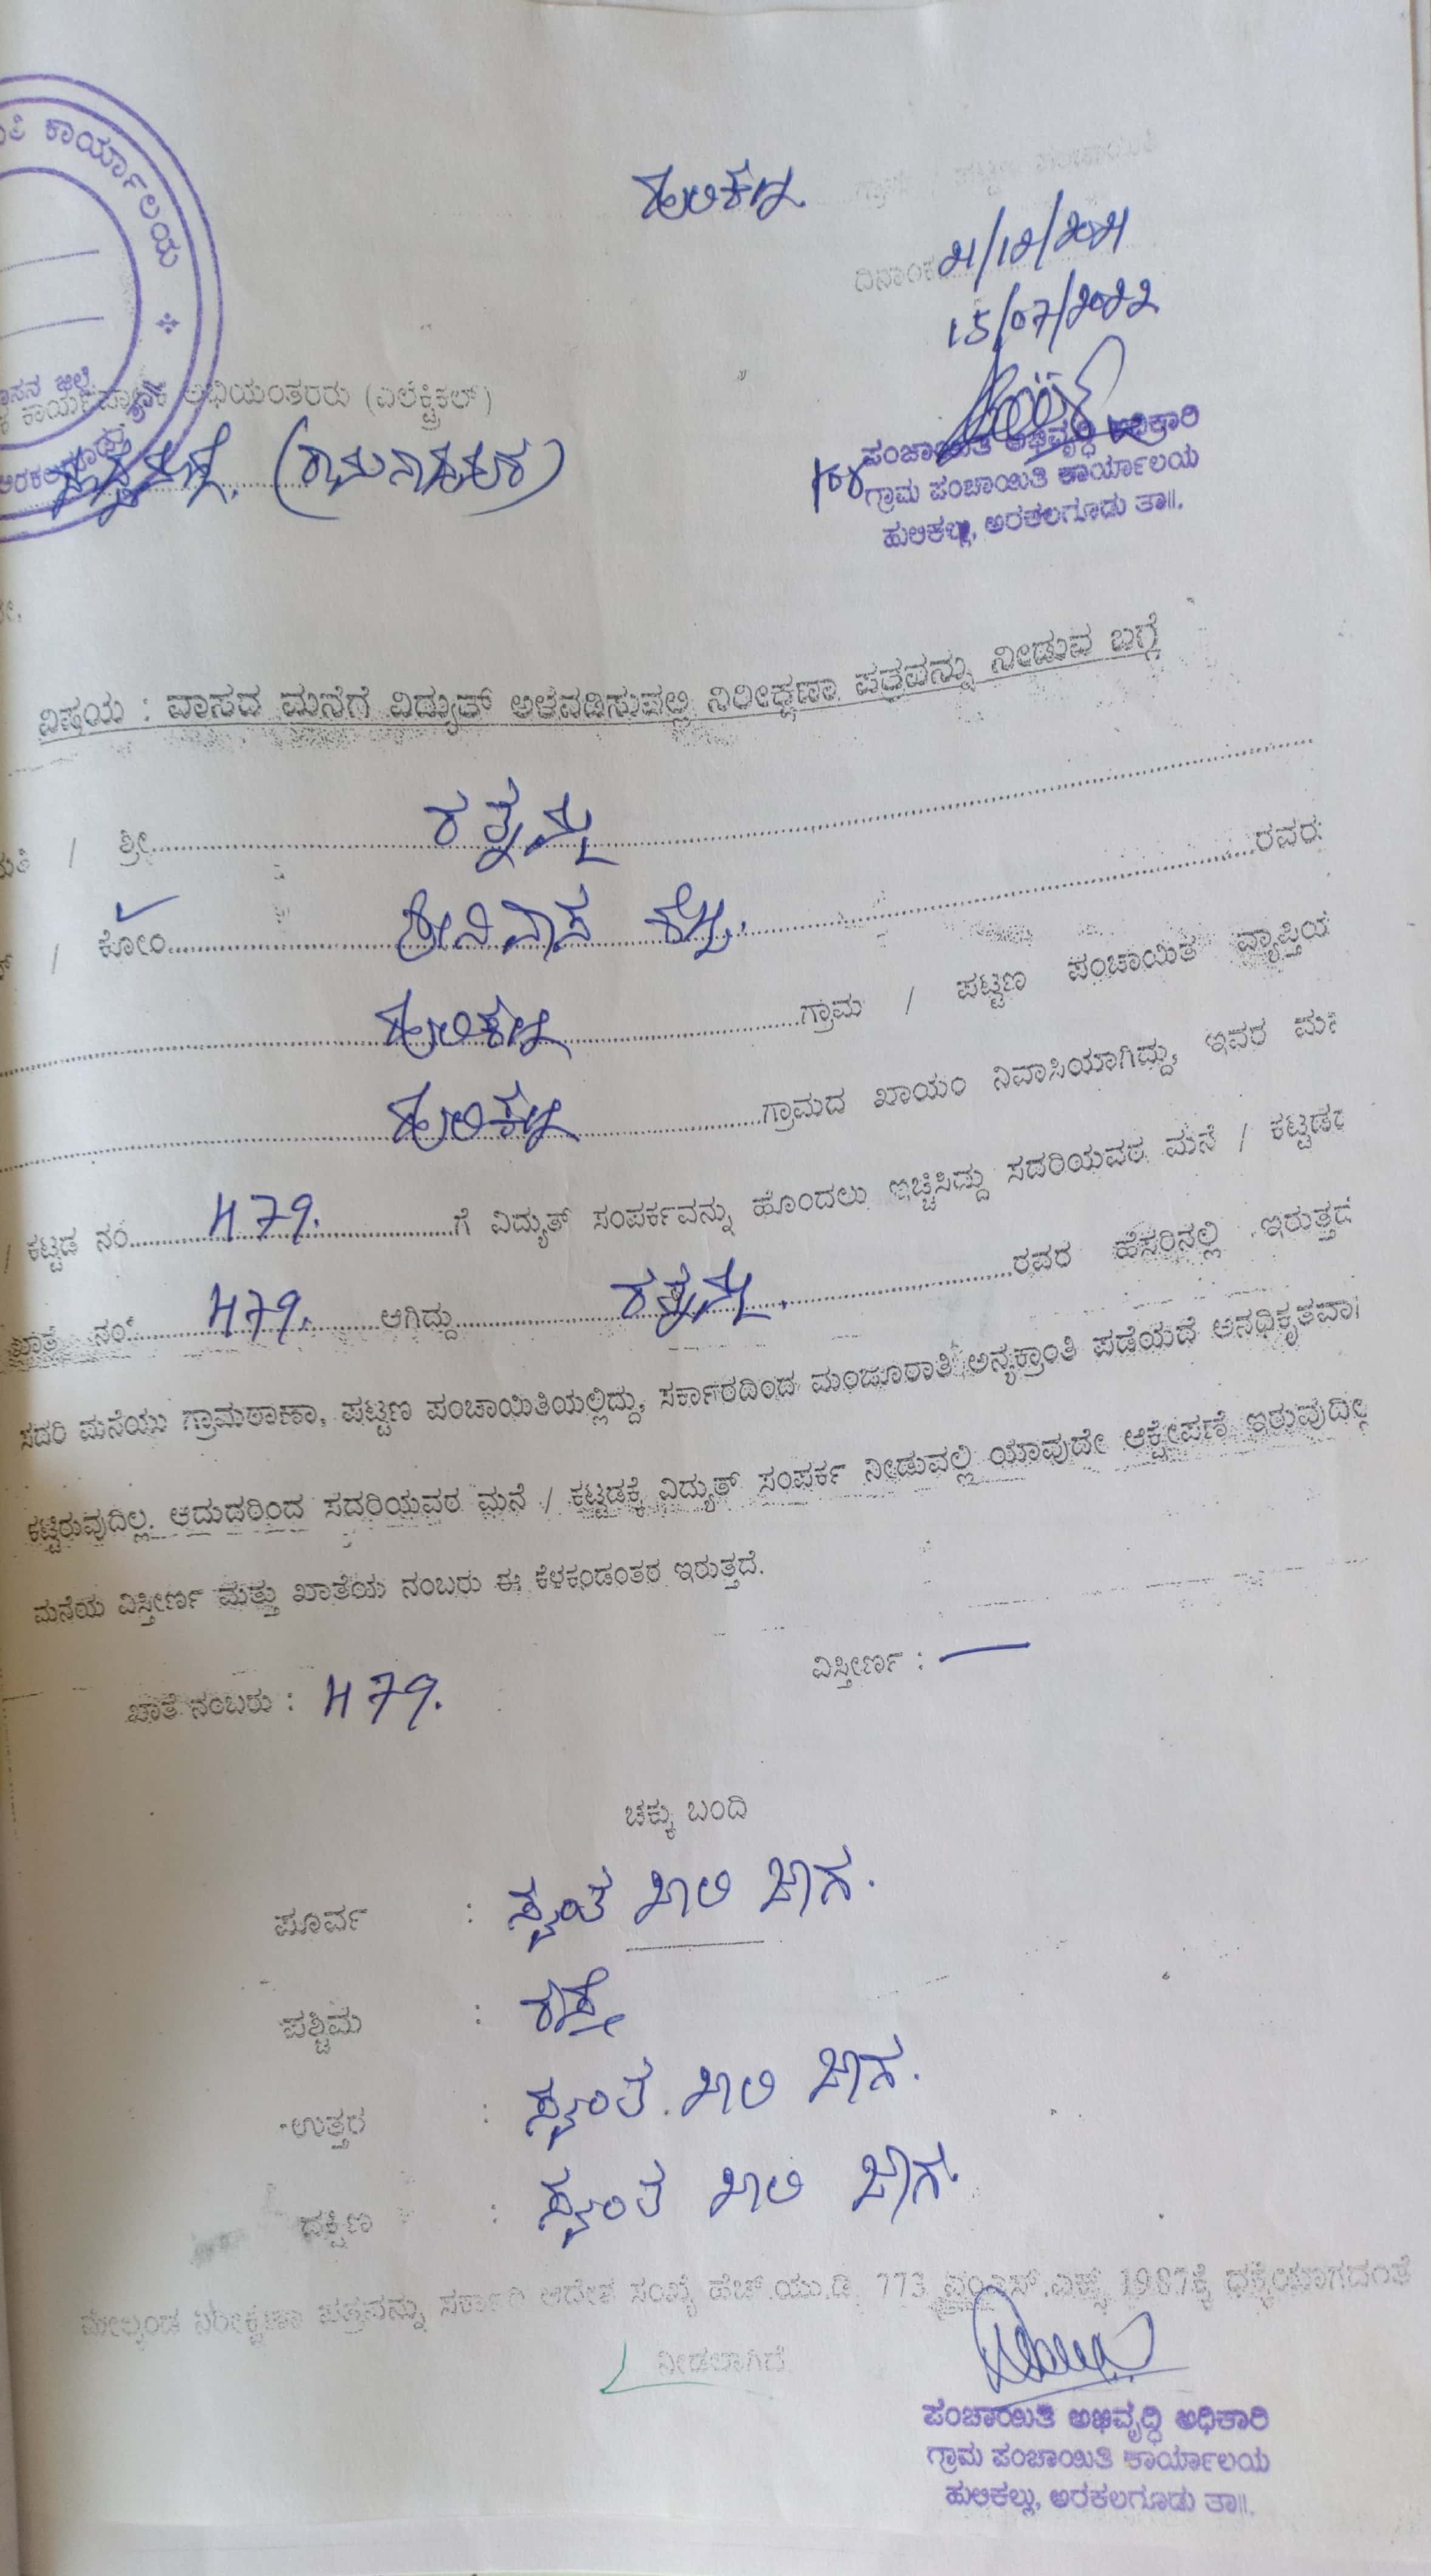 ಕಾರ್ಯಾಲಯ
ಹುಲಿಕಲ್ಲು
ಗ್ರಾಮ / ಪಟ್ಟಣ ಪಂಚಾಯಿತಿ
ದಿನಾಂಕ 21/12/2021
15/07/2022
ಕಾರ್ಯಪಾಲಕ ಅಭಿಯಂತರರು (ಎಲೆಕ್ಟ್ರಿಕಲ್)
(ರಾಮನಾಥಪುರ)
ಪಂಚಾಯಿತಿ ಅಭಿವೃದ್ಧಿ ಅಧಿಕಾರಿ
ಗ್ರಾಮ ಪಂಚಾಯಿತಿ ಕಾರ್ಯಾಲಯ
ಹುಲಿಕಲ್ಲು, ಅರಕಲಗೂಡು ತಾ||.
ವಿಷಯ : ವಾಸದ ಮನೆಗೆ ವಿದ್ಯುತ್ ಅಳವಡಿಸುವಲ್ಲಿ ನಿರೀಕ್ಷಣಾ ಪತ್ರವನ್ನು ನೀಡುವ ಬಗ್ಗೆ
/ ಶ್ರೀ ರತ್ನಮ್ಮ
/ ಕೋಂ ಶ್ರೀನಿವಾಸ ರವರ
ಹುಲಿಕಲ್ಲು ಗ್ರಾಮ / ಪಟ್ಟಣ ಪಂಚಾಯಿತಿ ವ್ಯಾಪ್ತಿಯ
ಹುಲಿಕಲ್ಲು ಗ್ರಾಮದ ಖಾಯಂ ನಿವಾಸಿಯಾಗಿದ್ದು, ಇವರ
ಕಟ್ಟಡ ನಂ 479. ಗೆ ವಿದ್ಯುತ್ ಸಂಪರ್ಕವನ್ನು ಹೊಂದಲು ಇಚ್ಚಿಸಿದ್ದು ಸದರಿಯವರ ಮನೆ / ಕಟ್ಟಡ
ಖಾತೆ ನಂ 479. ಆಗಿದ್ದು ರತ್ನಮ್ಮ. ರವರ ಹೆಸರಿನಲ್ಲಿ ಇರುತ್ತದೆ
ಸದರಿ ಮನೆಯು ಗ್ರಾಮಠಾಣಾ, ಪಟ್ಟಣ ಪಂಚಾಯಿತಿಯಲ್ಲಿದ್ದು, ಸರ್ಕಾರದಿಂದ ಮಂಜೂರಾತಿ ಅನ್ಯಕ್ರಾಂತಿ ಪಡೆಯದೆ ಅನಧಿಕೃತವಾ
ಕಟ್ಟಿರುವುದಿಲ್ಲ. ಆದುದರಿಂದ ಸದರಿಯವರ ಮನೆ / ಕಟ್ಟಡಕ್ಕೆ ವಿದ್ಯುತ್ ಸಂಪರ್ಕ ನೀಡುವಲ್ಲಿ ಯಾವುದೇ ಆಕ್ಷೇಪಣೆ ಇರುವುದಿಲ್ಲ
ಮನೆಯ ವಿಸ್ತೀರ್ಣ ಮತ್ತು ಖಾತೆಯ ನಂಬರು ಈ ಕೆಳಕಂಡಂತರ ಇರುತ್ತದೆ.
ಖಾತೆ ನಂಬರು : 479. ವಿಸ್ತೀರ್ಣ : —
ಚಕ್ಕು ಬಂದಿ
ಪೂರ್ವ : ಸ್ವಂತ ಖಾಲಿ ಜಾಗ.
ಪಶ್ಚಿಮ : ರಸ್ತೆ
ಉತ್ತರ : ಸ್ವಂತ ಖಾಲಿ ಜಾಗ.
ದಕ್ಷಿಣ : ಸ್ವಂತ ಖಾಲಿ ಜಾಗ.
ಮೇಲ್ಕಂಡ ನಿರೀಕ್ಷಣಾ ಪತ್ರವನ್ನು ಸರ್ಕಾರಿ ಆದೇಶ ಸಂಖ್ಯೆ ಹೆಚ್.ಯು.ಡಿ. 773 ಎಂ.ಎಸ್.ಎಕ್ಸ್ 1987ಕ್ಕೆ ಧಕ್ಕೆಯಾಗದಂತೆ
ನೀಡಲಾಗಿದೆ
ಪಂಚಾಯಿತಿ ಅಭಿವೃದ್ಧಿ ಅಧಿಕಾರಿ
ಗ್ರಾಮ ಪಂಚಾಯಿತಿ ಕಾರ್ಯಾಲಯ
ಹುಲಿಕಲ್ಲು, ಅರಕಲಗೂಡು ತಾ||.